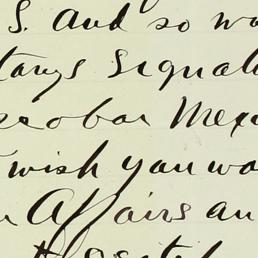 S. and so wo
tarys Signat
scobar Mex
wish you wo
Affairs an